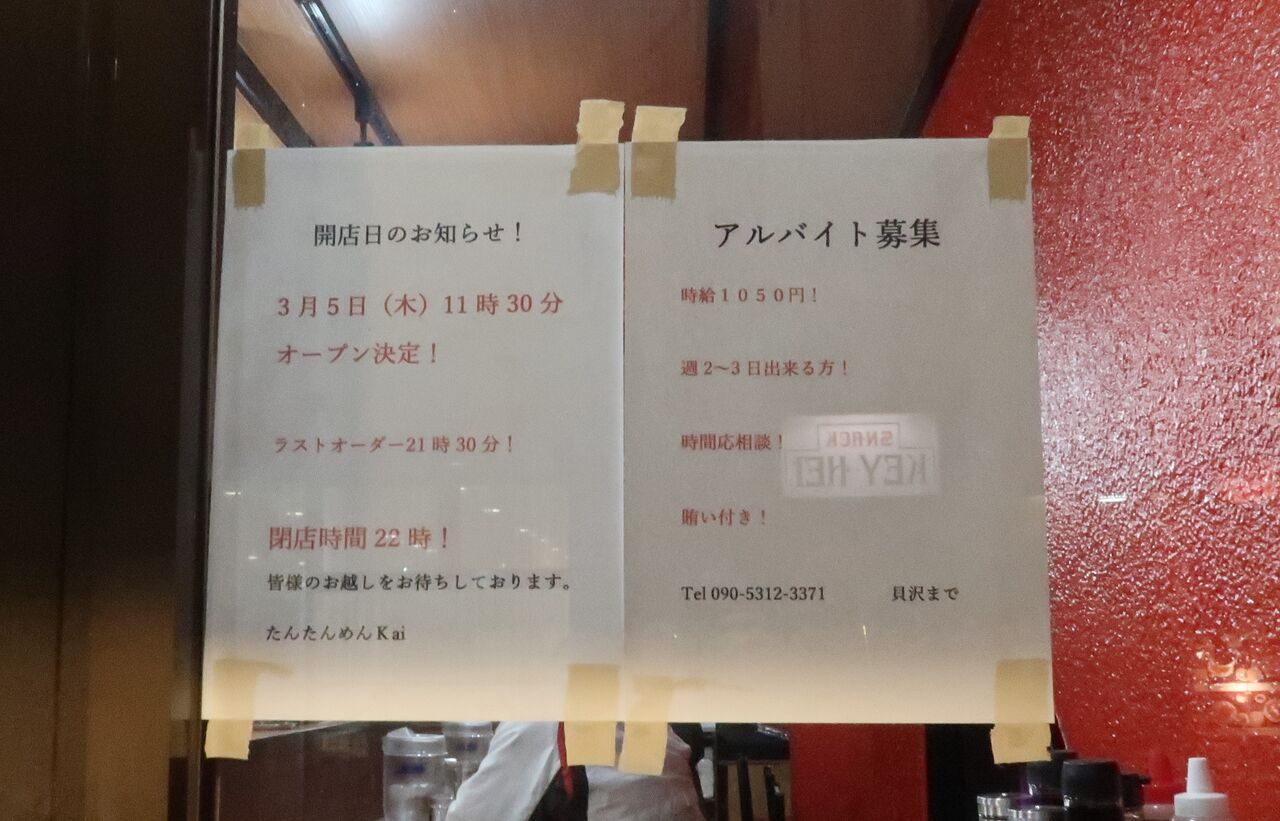 開店日のお知らせ！
3月5日（木）11時30分
オープン決定！
ラストオーダー21時30分！
閉店時間22時！
皆様のお越しをお待ちしております。
たんたんめんKai
アルバイト募集
時給１０５０円！
週2～3日出来る方！
時間応相談！
賄い付き！
Tel 090-5312-3371 貝沢まで
SNACK
KEY-HEI